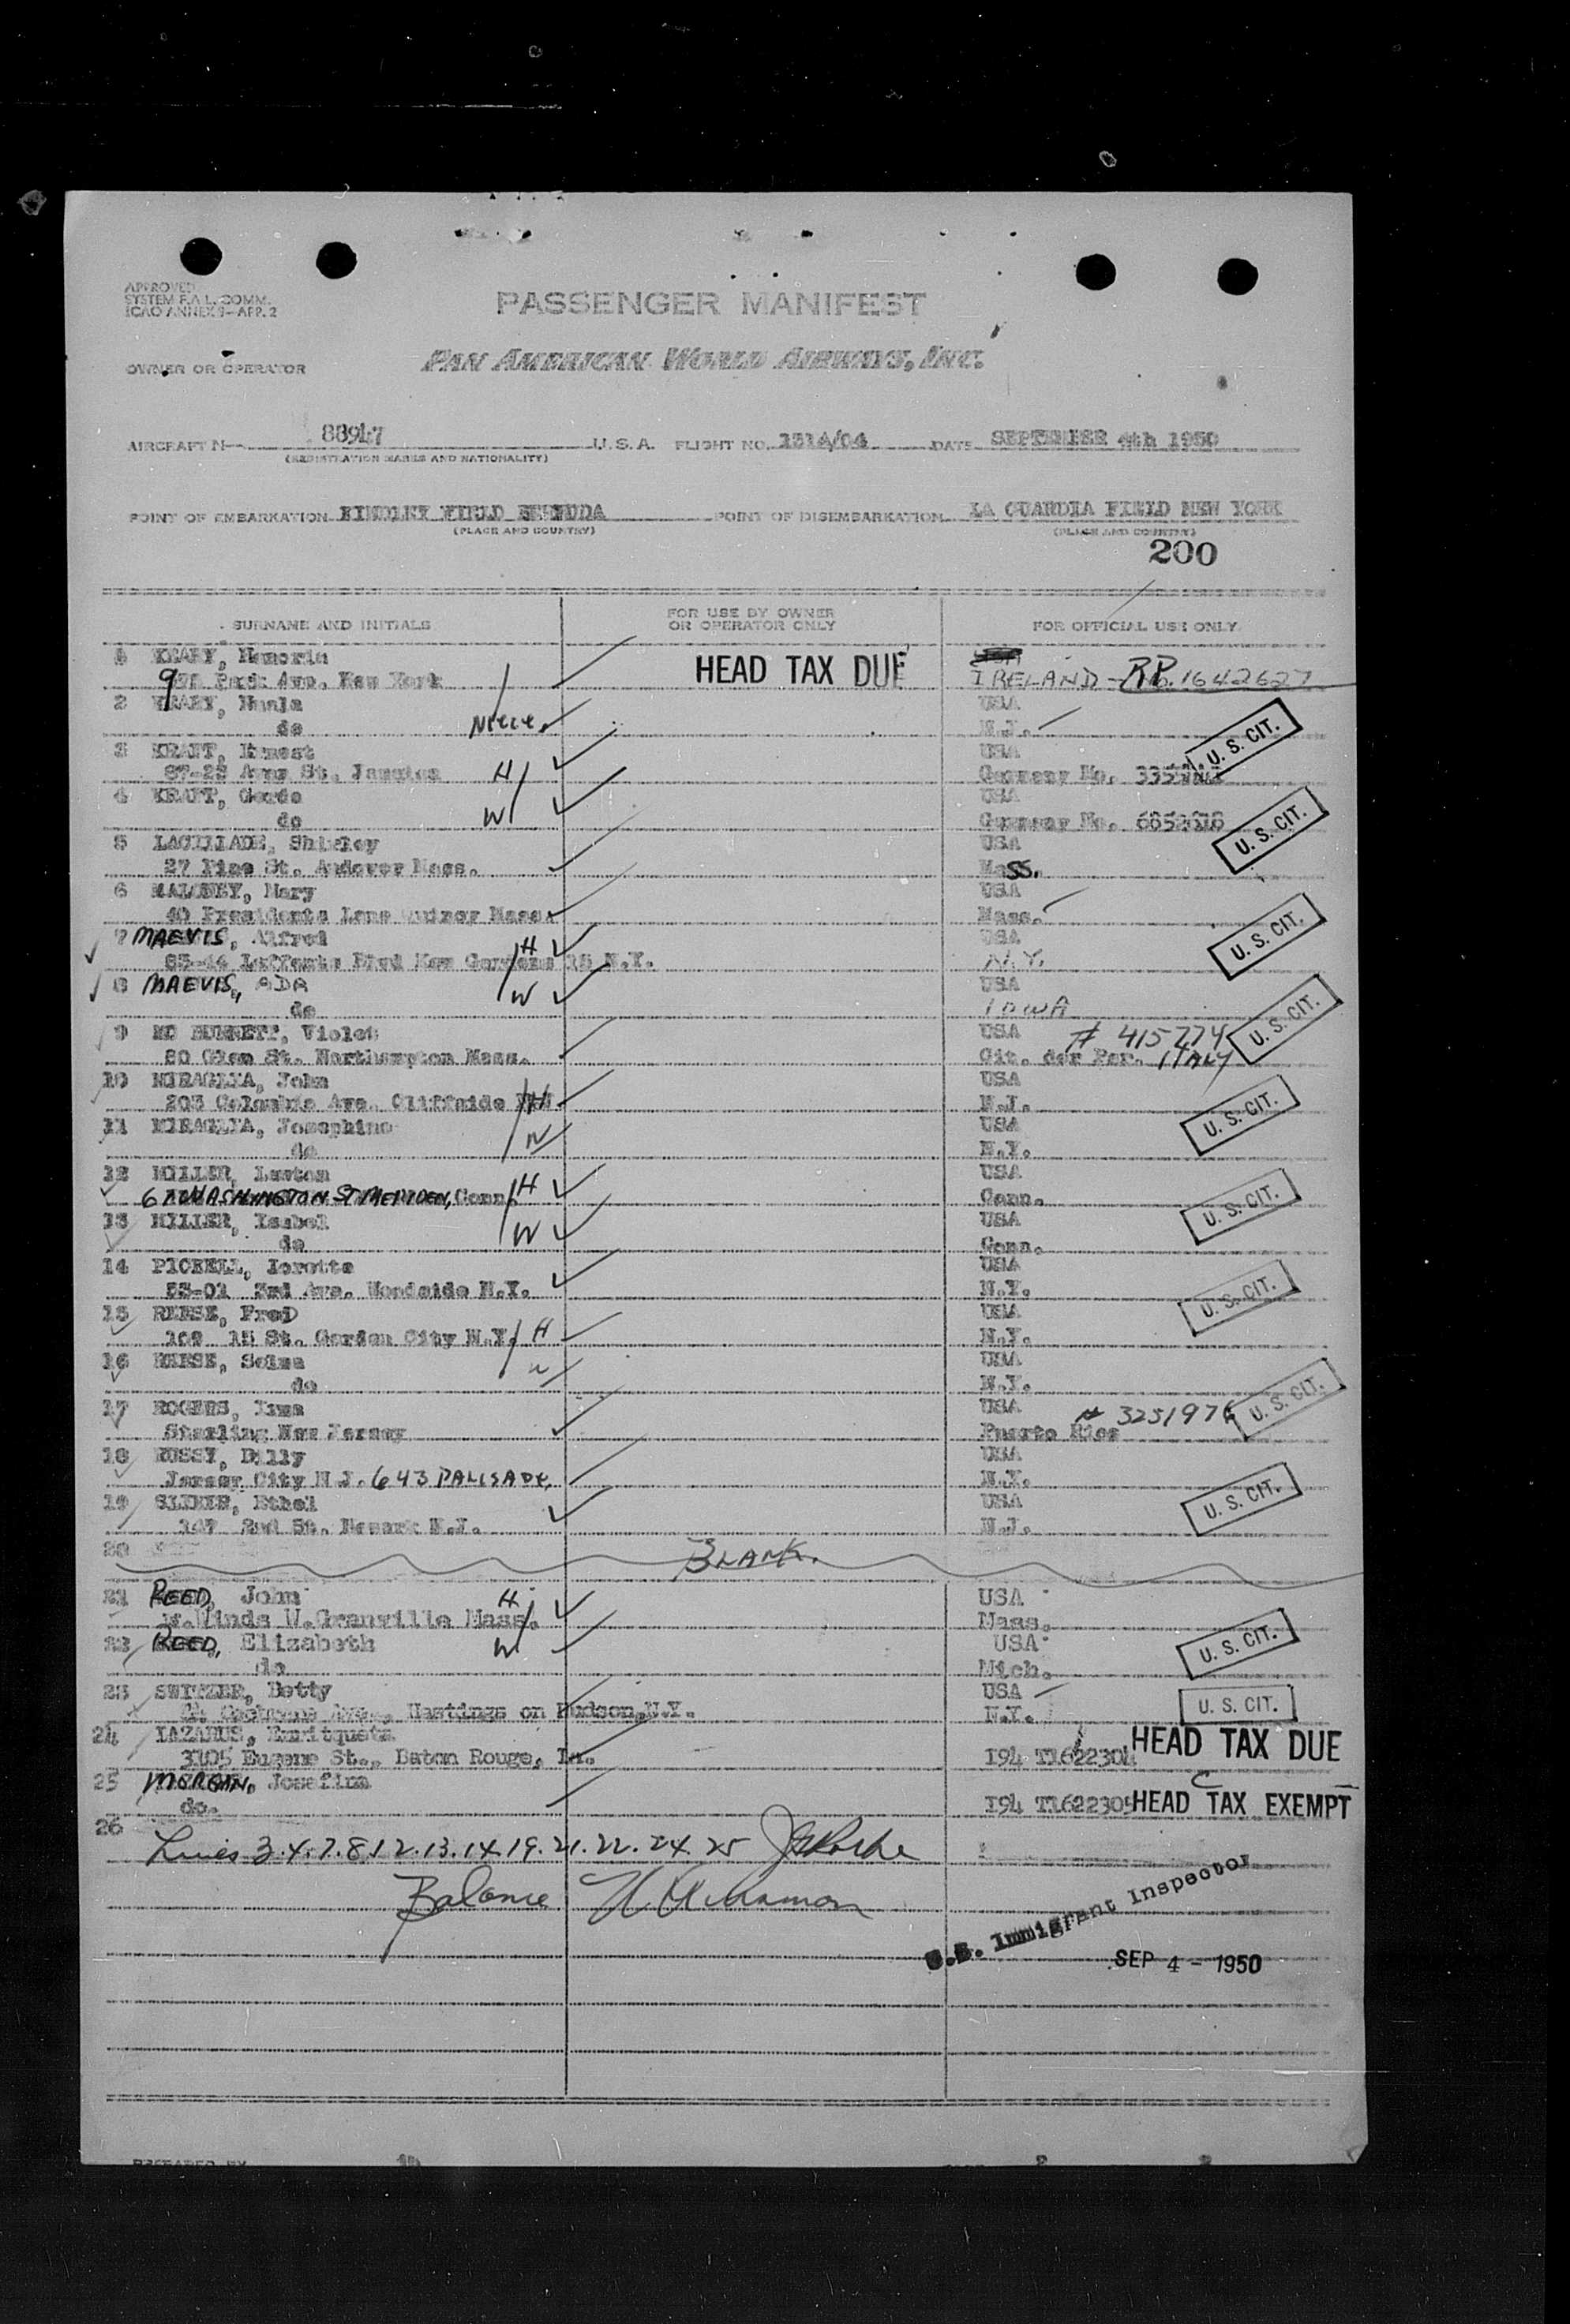 APPROVED
SYSTEM F.A.L. COMM.
ICAO ANNEX 9—APP. 2
PASSENGER MANIFEST
OWNER OR OPERATOR
PAN AMERICAN WORLD AIRWAYS, INC.
AIRCRAFT N— 88947 U.S.A. FLIGHT NO. 131A/04 DATE SEPTEMBER 4th 1950
(REGISTRATION MARKS AND NATIONALITY)
POINT OF EMBARKATION KINDLEY FIELD BERMUDA POINT OF DISEMBARKATION LA GUARDIA FIELD NEW YORK
(PLACE AND COUNTRY) (PLACE AND COUNTRY)
200
SURNAME AND INITIALS FOR USE BY OWNER OR OPERATOR ONLY FOR OFFICIAL USE ONLY
HEAD TAX DUE
Park Ave. New York IRELAND - RP. 1642627
2 USA
do Niece. N.J.
3 KRAFT, Ernest USA
St. Jamaica H Germany No. U.S. CIT.
4 KRAFT, USA
do W Germany No. U.S. CIT.
5 Shirley USA
27 Pine St. Andover Mass. Mass.
6 MALONEY, Mary USA
40 Presidents Lane Mass. Mass.
7 MAEVIS, Alfred H USA U.S. CIT.
Lefferts Blvd Kew Gardens 15 N.Y. N.Y.
8 MAEVIS, ADA W USA
do IOWA
9 Violet USA # 415774 U.S. CIT.
20 St. Northampton Mass. Cit. der Per. ITALY
10 MIRAGLIA, John USA
203 Columbia Ave. Cliffside H N.J. U.S. CIT.
11 MIRAGLIA, Josephine USA
do W N.Y.
12 MILLER, H USA
67 WASHINGTON ST MERIDEN, Conn. Conn. U.S. CIT.
13 MILLER, Isabel W USA
do Conn.
14 PICKELL, USA
3rd Ave. Woodside N.Y. N.Y. U.S. CIT.
15 REESE, Fred USA
15 St. Garden City N.Y. H N.Y.
16 REESE, Selma W USA
do N.Y.
17 ROGERS, USA # 325197 U.S. CIT.
Sterling New Jersey Puerto Rico
18 RUSSY, Billy USA
Jersey City N.J. 643 PALISADE. N.Y.
19 Ethel USA U.S. CIT.
147 2nd St. Newark N.J. N.J.
20 BLANK.
21 REED, John H USA
W. Granville Mass. Mass.
22 REED, Elizabeth W USA U.S. CIT.
do Mich.
23 SWITZER, Betty USA
Ave., Hastings on Hudson, N.Y. N.Y. U.S. CIT.
24 LAZARUS, Enriqueta HEAD TAX DUE
3105 Eugene St., Baton Rouge, La. I94 T1622304
25 Josefina C
do. I94 T1622305 HEAD TAX EXEMPT
26
Lines 3.4.7.8.12.13.14.19.21.22.24.25
Balance
U.S. Immigrant Inspector
SEP 4 - 1950
PREPARED BY